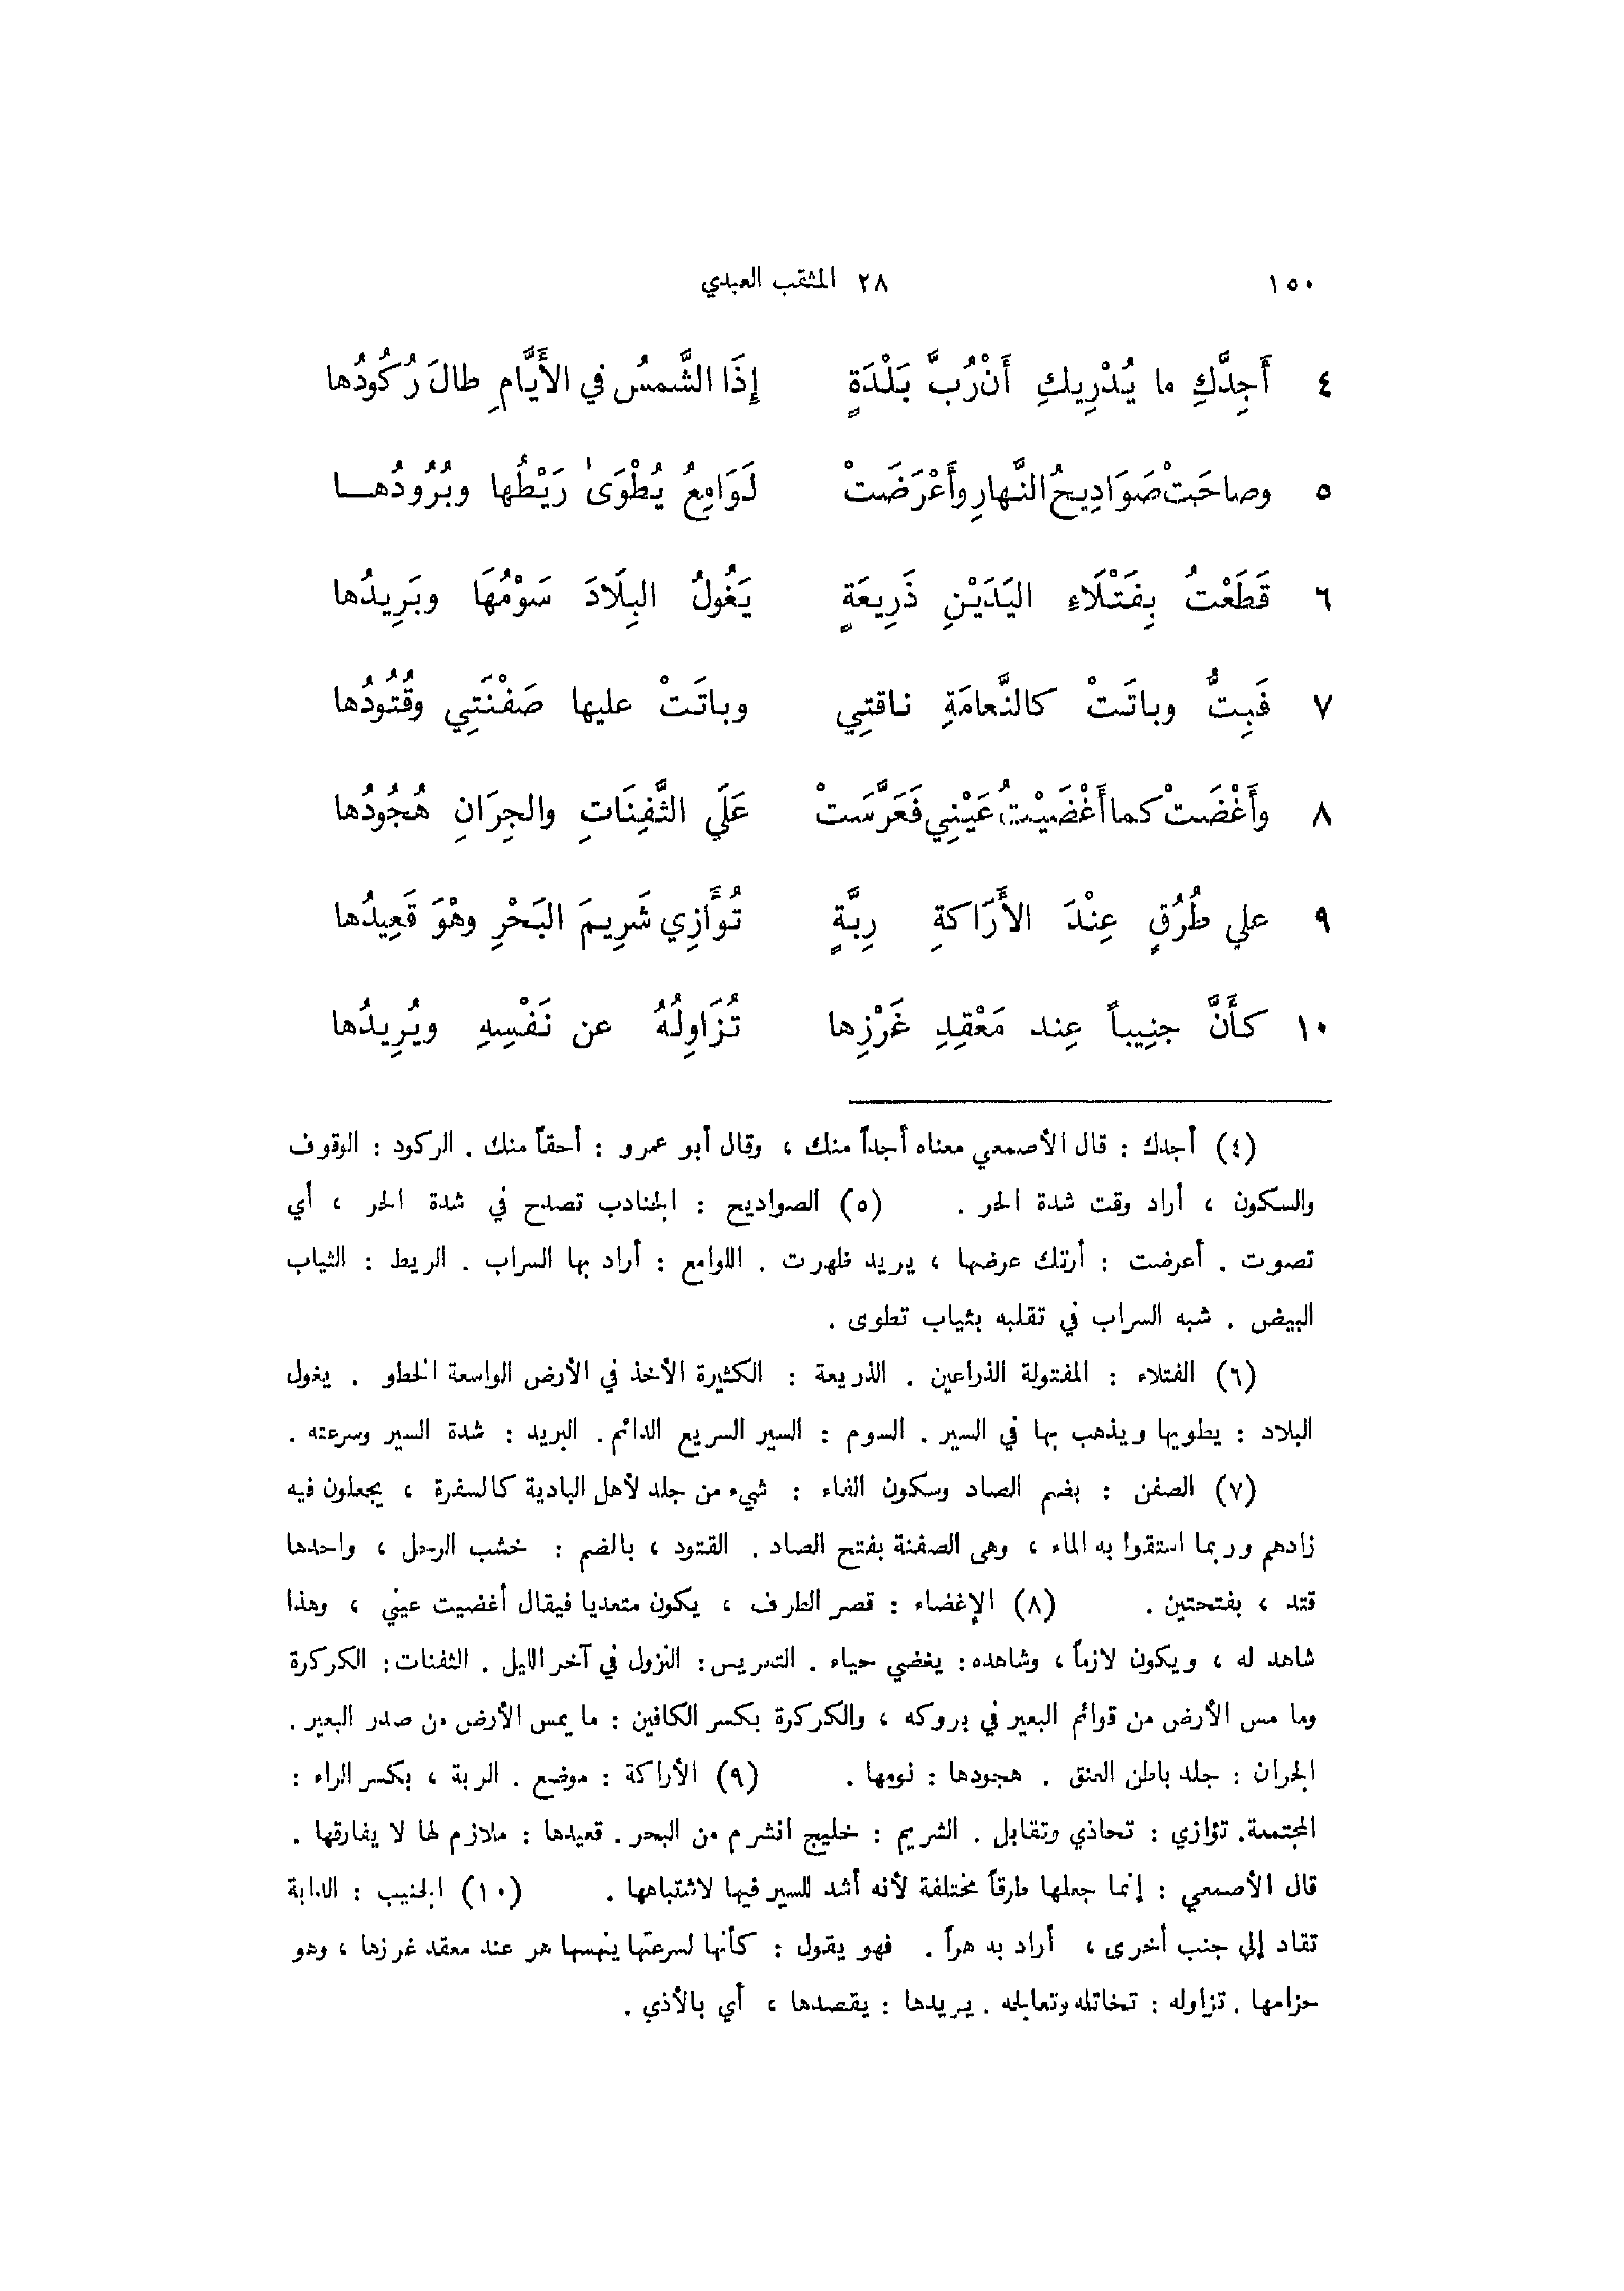 ١٥٠ ٢٨ المثقب العبدي
٤ أَجِدَّكِ ما يُدْرِيكِ أَنْ رُبَّ بَلْدَةٍ إِذَا الشَّمسُ في الأَيَّامِ طالَ رُكُودُها
٥ وصاحَبتْ صَوَادِيحُ النَّهارِ وأَعْرَضَتْ لَوَامِعُ يُطْوَىٰ رَيْطُها وبُرُودُهـــا
٦ قَطَعْتُ بِفَتْلَاءِ اليَدَيْنِ ذَرِيعَةٍ يَغُولُ البِلَادَ سَوْمُهَا وبَرِيدُها
٧ فَبِتُّ وباتَتْ كالنَّعامَةِ ناقتِي وباتَتْ عليها صَفْنَتِي وقُتُودُها
٨ وأَغْضَتْ كما أَغْضَيْتُ عَيْنِي فَعَرَّسَتْ عَلَى الثَّفِنَاتِ والجِرَانِ هُجُودُها
٩ على طُرُقٍ عِنْدَ الأَرَاكةِ رِبَّةٍ تُؤَازِي شَرِيمَ البَحْرِ وهْوَ قَعِيدُها
١٠ كأَنَّ جنِيباً عِند مَعْقِدِ غَرْزِها تُزَاوِلُهُ عن نَفْسِهِ ويُرِيدُها
(٤) أجدك : قال الأصمعي معناه أجداً منك ، وقال أبو عمرو : أحقاً منك . الركود : الوقوف
والسكون ، أراد وقت شدة الحر . (٥) الصواديح : الجنادب تصدح في شدة الحر ، أي
تصوت . أعرضت : أرتك عرضها ، يريد ظهرت . اللوامع : أراد بها السراب . الريط : الثياب
البيض . شبه السراب في تقلبه بثياب تطوى .
(٦) الفتلاء : المفتولة الذراعين . الذريعة : الكثيرة الأخذ في الأرض الواسعة الخطو . يغول
البلاد : يطويها ويذهب بها في السير . السوم : السير السريع الدائم . البريد : شدة السير وسرعته .
(٧) الصفن : بضم الصاد وسكون الفاء : شيء من جلد لأهل البادية كالسفرة ، يجعلون فيه
زادهم وربما استقوا به الماء ، وهى الصفنة بفتح الصاد . القتود ، بالضم : خشب الرحل ، واحدها
قتد ، بفتحتين . (٨) الإغضاء : قصر الطرف ، يكون متعديا فيقال أغضيت عيني ، وهذا
شاهد له ، ويكون لازماً ، وشاهده : يغضي حياء . التعريس : النزول في آخر الليل . الثفنات : الكركرة
وما مس الأرض من قوائم البعير في بروكه ، والكركرة بكسر الكافين : ما يمس الأرض من صدر البعير .
الجران : جلد باطن العنق . هجودها : نومها . (٩) الأراكة : موضع . الربة ، بكسر الراء :
المجتمعة . تؤازي : تحاذي وتقابل . الشريم : خليج انشرم من البحر . قعيدها : ملازم لها لا يفارقها .
قال الأصمعي : إنما جعلها طرقاً مختلفة لأنه أشد للسير فيها لاشتباهها . (١٠) الجنيب : الدابة
تقاد إلى جنب أخرى ، أراد به هراً . فهو يقول : كأنها لسرعتها ينهسها هر عند معقد غرزها ، وهو
حزامها . تزاوله : تخاتله وتعالجه . يريدها : يقصدها ، أي بالأذي .